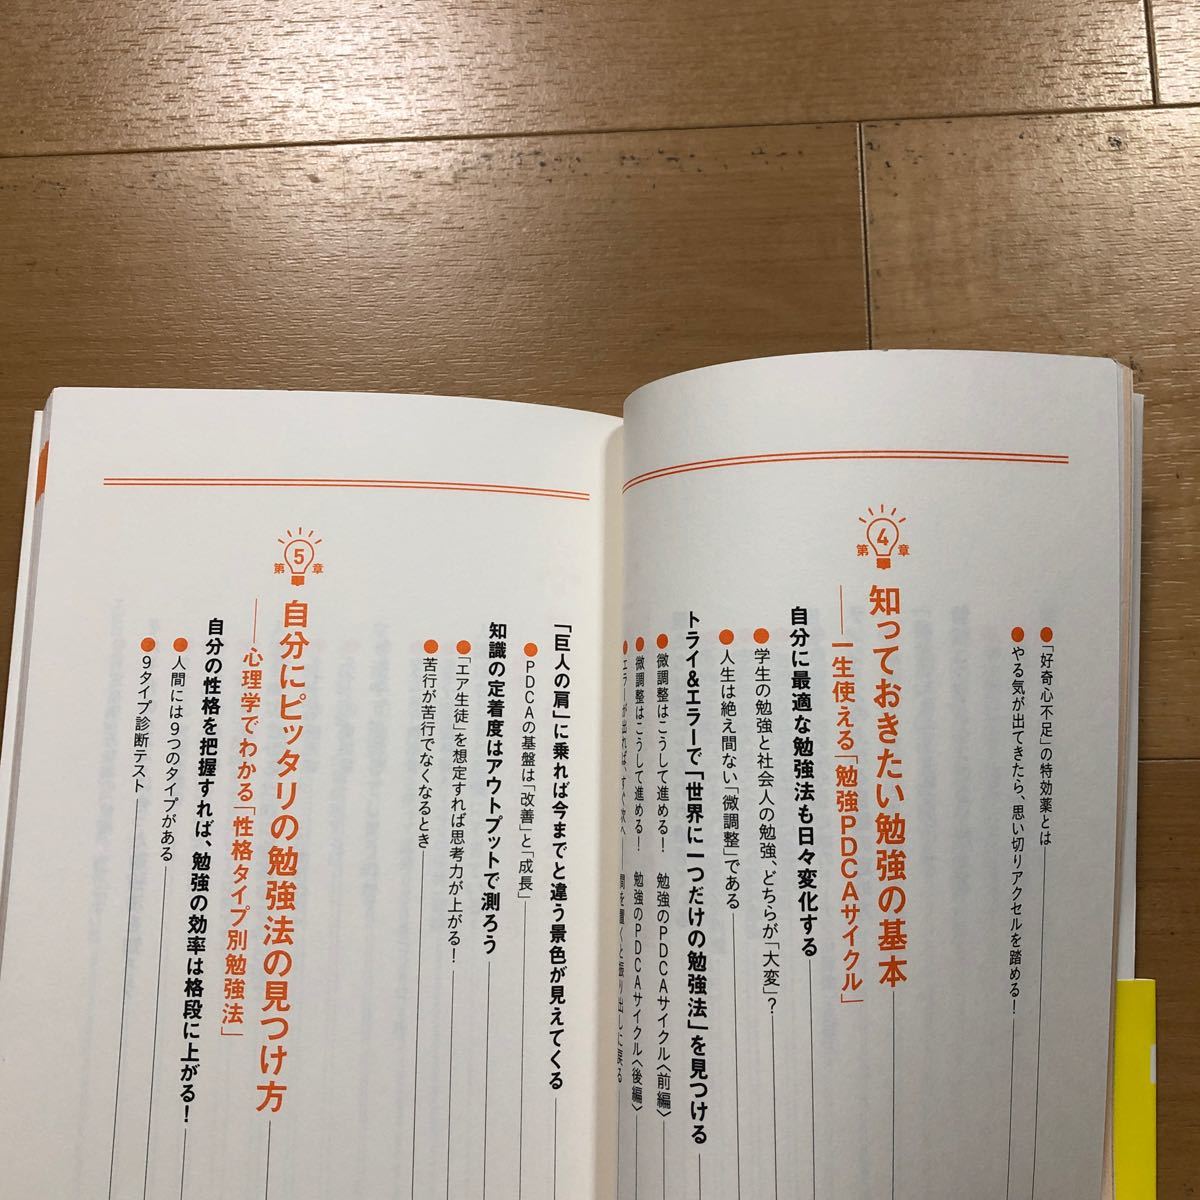 ●「好奇心不足」の特効薬とは
●やる気が出てきたら、思い切りアクセルを踏める！
第4章
知っておきたい勉強の基本
――一生使える「勉強PDCAサイクル」
自分に最適な勉強法も日々変化する
●学生の勉強と社会人の勉強、どちらが「大変」？
●人生は絶え間ない「微調整」である
トライ&エラーで「世界に一つだけの勉強法」を見つける
●微調整はこうして進める！　勉強のPDCAサイクル〈前編〉
●微調整はこうして進める！　勉強のPDCAサイクル〈後編〉
●エラーが出れば、すぐ次へ　間を置くと振り出しに戻る
「巨人の肩」に乗れば今までと違う景色が見えてくる
●PDCAの基盤は「改善」と「成長」
知識の定着度はアウトプットで測ろう
●「エア生徒」を想定すれば思考力が上がる！
●苦行が苦行でなくなるとき
第5章
自分にピッタリの勉強法の見つけ方
――心理学でわかる「性格タイプ別勉強法」
自分の性格を把握すれば、勉強の効率は格段に上がる！
●人間には9つのタイプがある
●9タイプ診断テスト